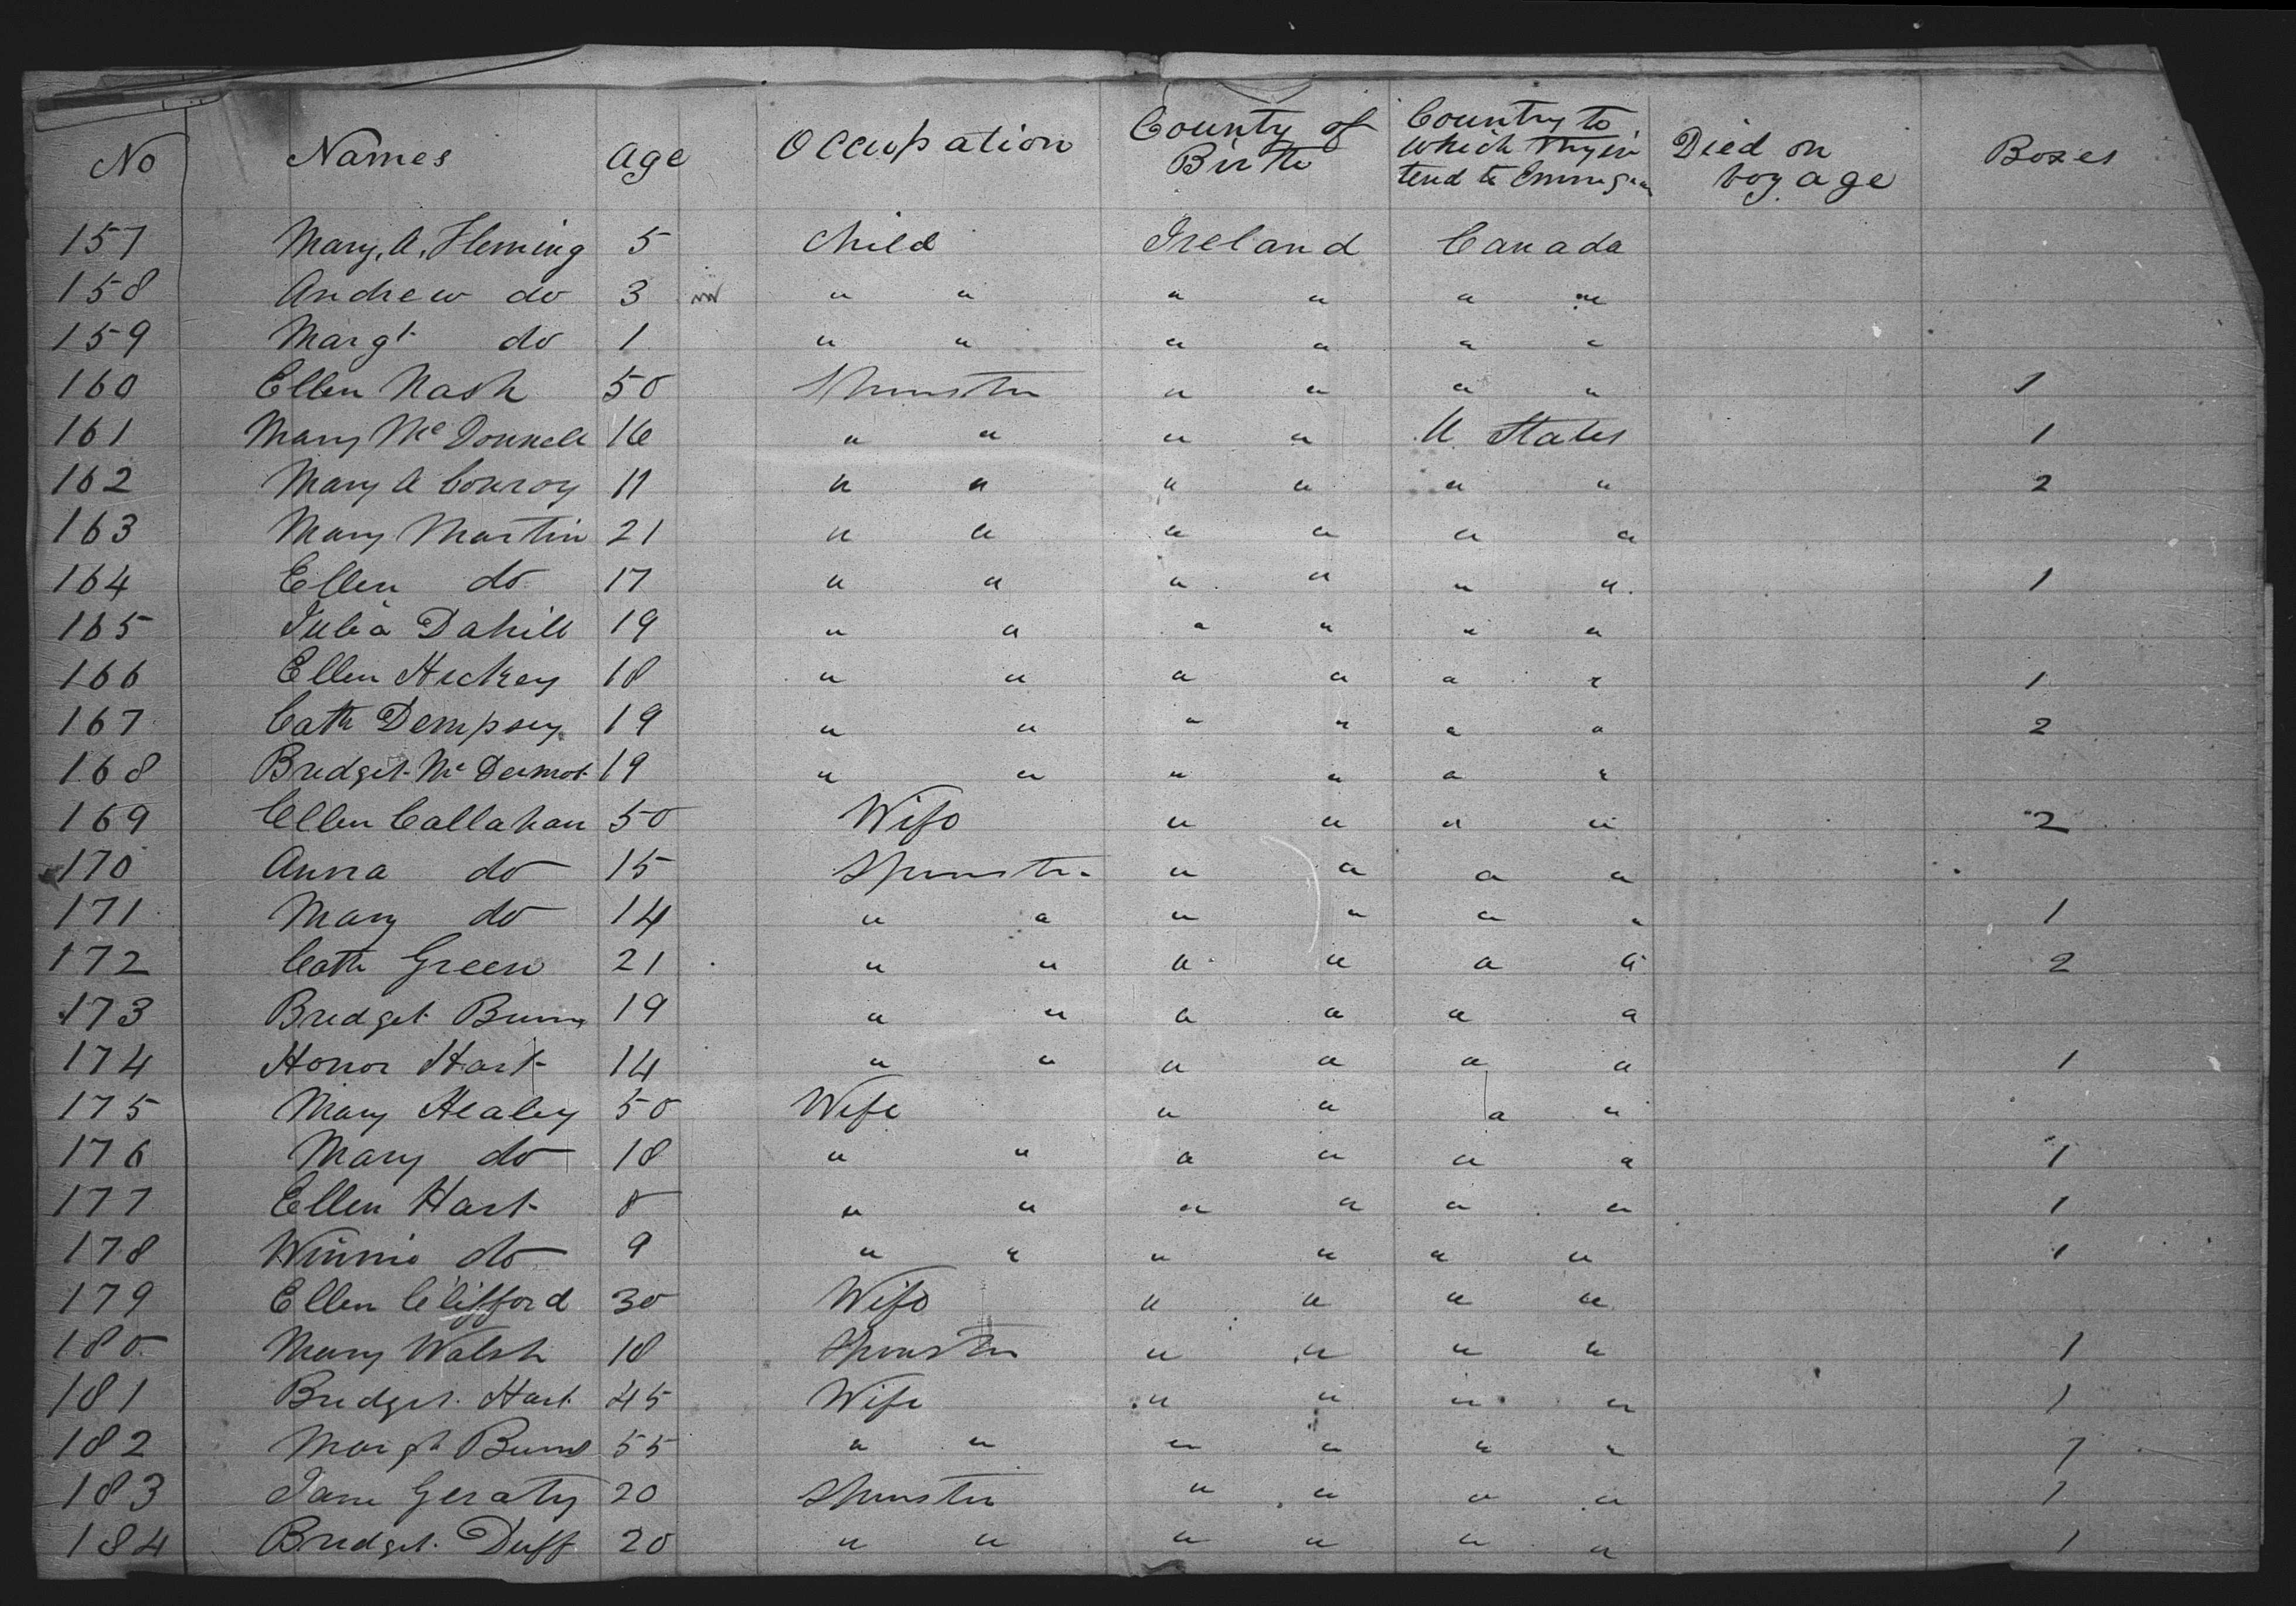 No Names Age Occupation County of Birth Country to which they in tend to Emmigrate Died on voyage Boxes
157 Mary. A. Fleming 5 child Ireland Canada
158 Andrew do 3 " " " " " "
159 Margt do 1 " " " " " "
160 Ellen Nash 50 Spinster " " " " 1
161 Mary McDonnell 16 " " " " U States 1
162 Mary A Conroy 11 " " " " " " 2
163 Mary Martin 21 " " " " " "
164 Ellen do 17 " " " " " " 1
165 Julia Dahill 19 " " " " " "
166 Ellen Hickey 18 " " " " " " 1
167 Cath Dempsey 19 " " " " " " 2
168 Bridget McDermot 19 " " " " " "
169 Ellen Callahan 50 Wife " " " " 2
170 Anna do 15 Spinster " " " "
171 Mary do 14 " " " " " " 1
172 Cath Green 21 " " " " " " 2
173 Bridget Burns 19 " " " " " "
174 Honor Hart 14 " " " " " " 1
175 Mary Healey 50 Wife " " " "
176 Mary do 18 " " " " " " 1
177 Ellen Hart 8 " " " " " " 1
178 Winnie do 9 " " " " " " 1
179 Ellen Clifford 30 Wife " " " "
180 Mary Walsh 18 Spinster " " " " 1
181 Bridget Hart 45 Wife " " " " 1
182 Margt Burns 55 " " " " " " 1
183 Jane Geraty 20 Spinster " " " " 1
184 Bridget Duff 20 " " " " " " 1